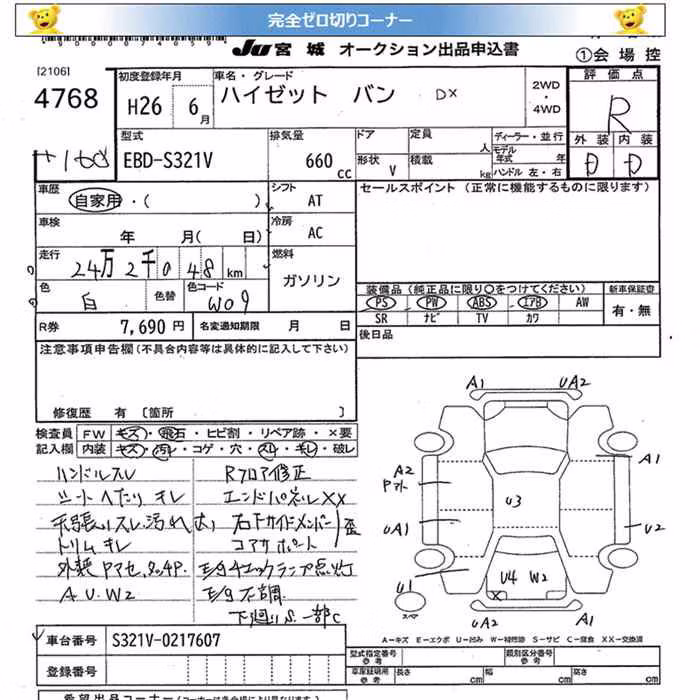 完全ゼロ切りコーナー
JU 宮城 オークション出品申込書
①会場控
[2106]
4768
初度登録年月
H26 6月
車名・グレード
ハイゼット バン DX
2WD・4WD
評価点
R
外装 内装
D D
型式
EBD-S321V
排気量
660 cc
ドア
形状 V
定員 人
積載 kg
ディーラー・並行
モデル年式 年
ハンドル 左・右
車歴
自家用・( )
シフト
AT
セールスポイント (正常に機能するものに限ります)
車検
年 月( 日)
冷房
AC
走行
24万2千048km
燃料
ガソリン
色
白
色替
色コード
W09
装備品(純正品に限り○をつけてください)
新車保証書
PS PW ABS エアB AW
有・無
SR ナビ TV カワ
R券 7,690円
名変通知期限 月 日
後日品
注意事項申告欄(不具合内容等は具体的に記入して下さい)
修復歴 有 [箇所 ]
検査員 FW キズ・飛石・ヒビ割・リペア跡・×要
記入欄 内装 キズ・汚れ・コゲ・穴・スレ・キレ・破レ
ハンドルスレ
シートヘたりキレ
トリムキレ
A U.W2
Rフロア修正
エンドパネルXX
右下サイドメンバー
コアサポート
歪
E/gチェックランプ点灯
E/g不調
下廻りS.一部C
A1 UA2
A2
A1
UA1
U3
U2
U1
U4 W2
X
スペア
UA2 A1
A−キズ E−エクボ U−凹み W−補修跡 S−サビ C−腐食 XX−交換済
車台番号 S321V-0217607
登録番号
型式指定番号 参考
類別区分番号 参考
車庫証明用 参考 長さ cm 幅 cm 高さ cm
希望出品コーナー